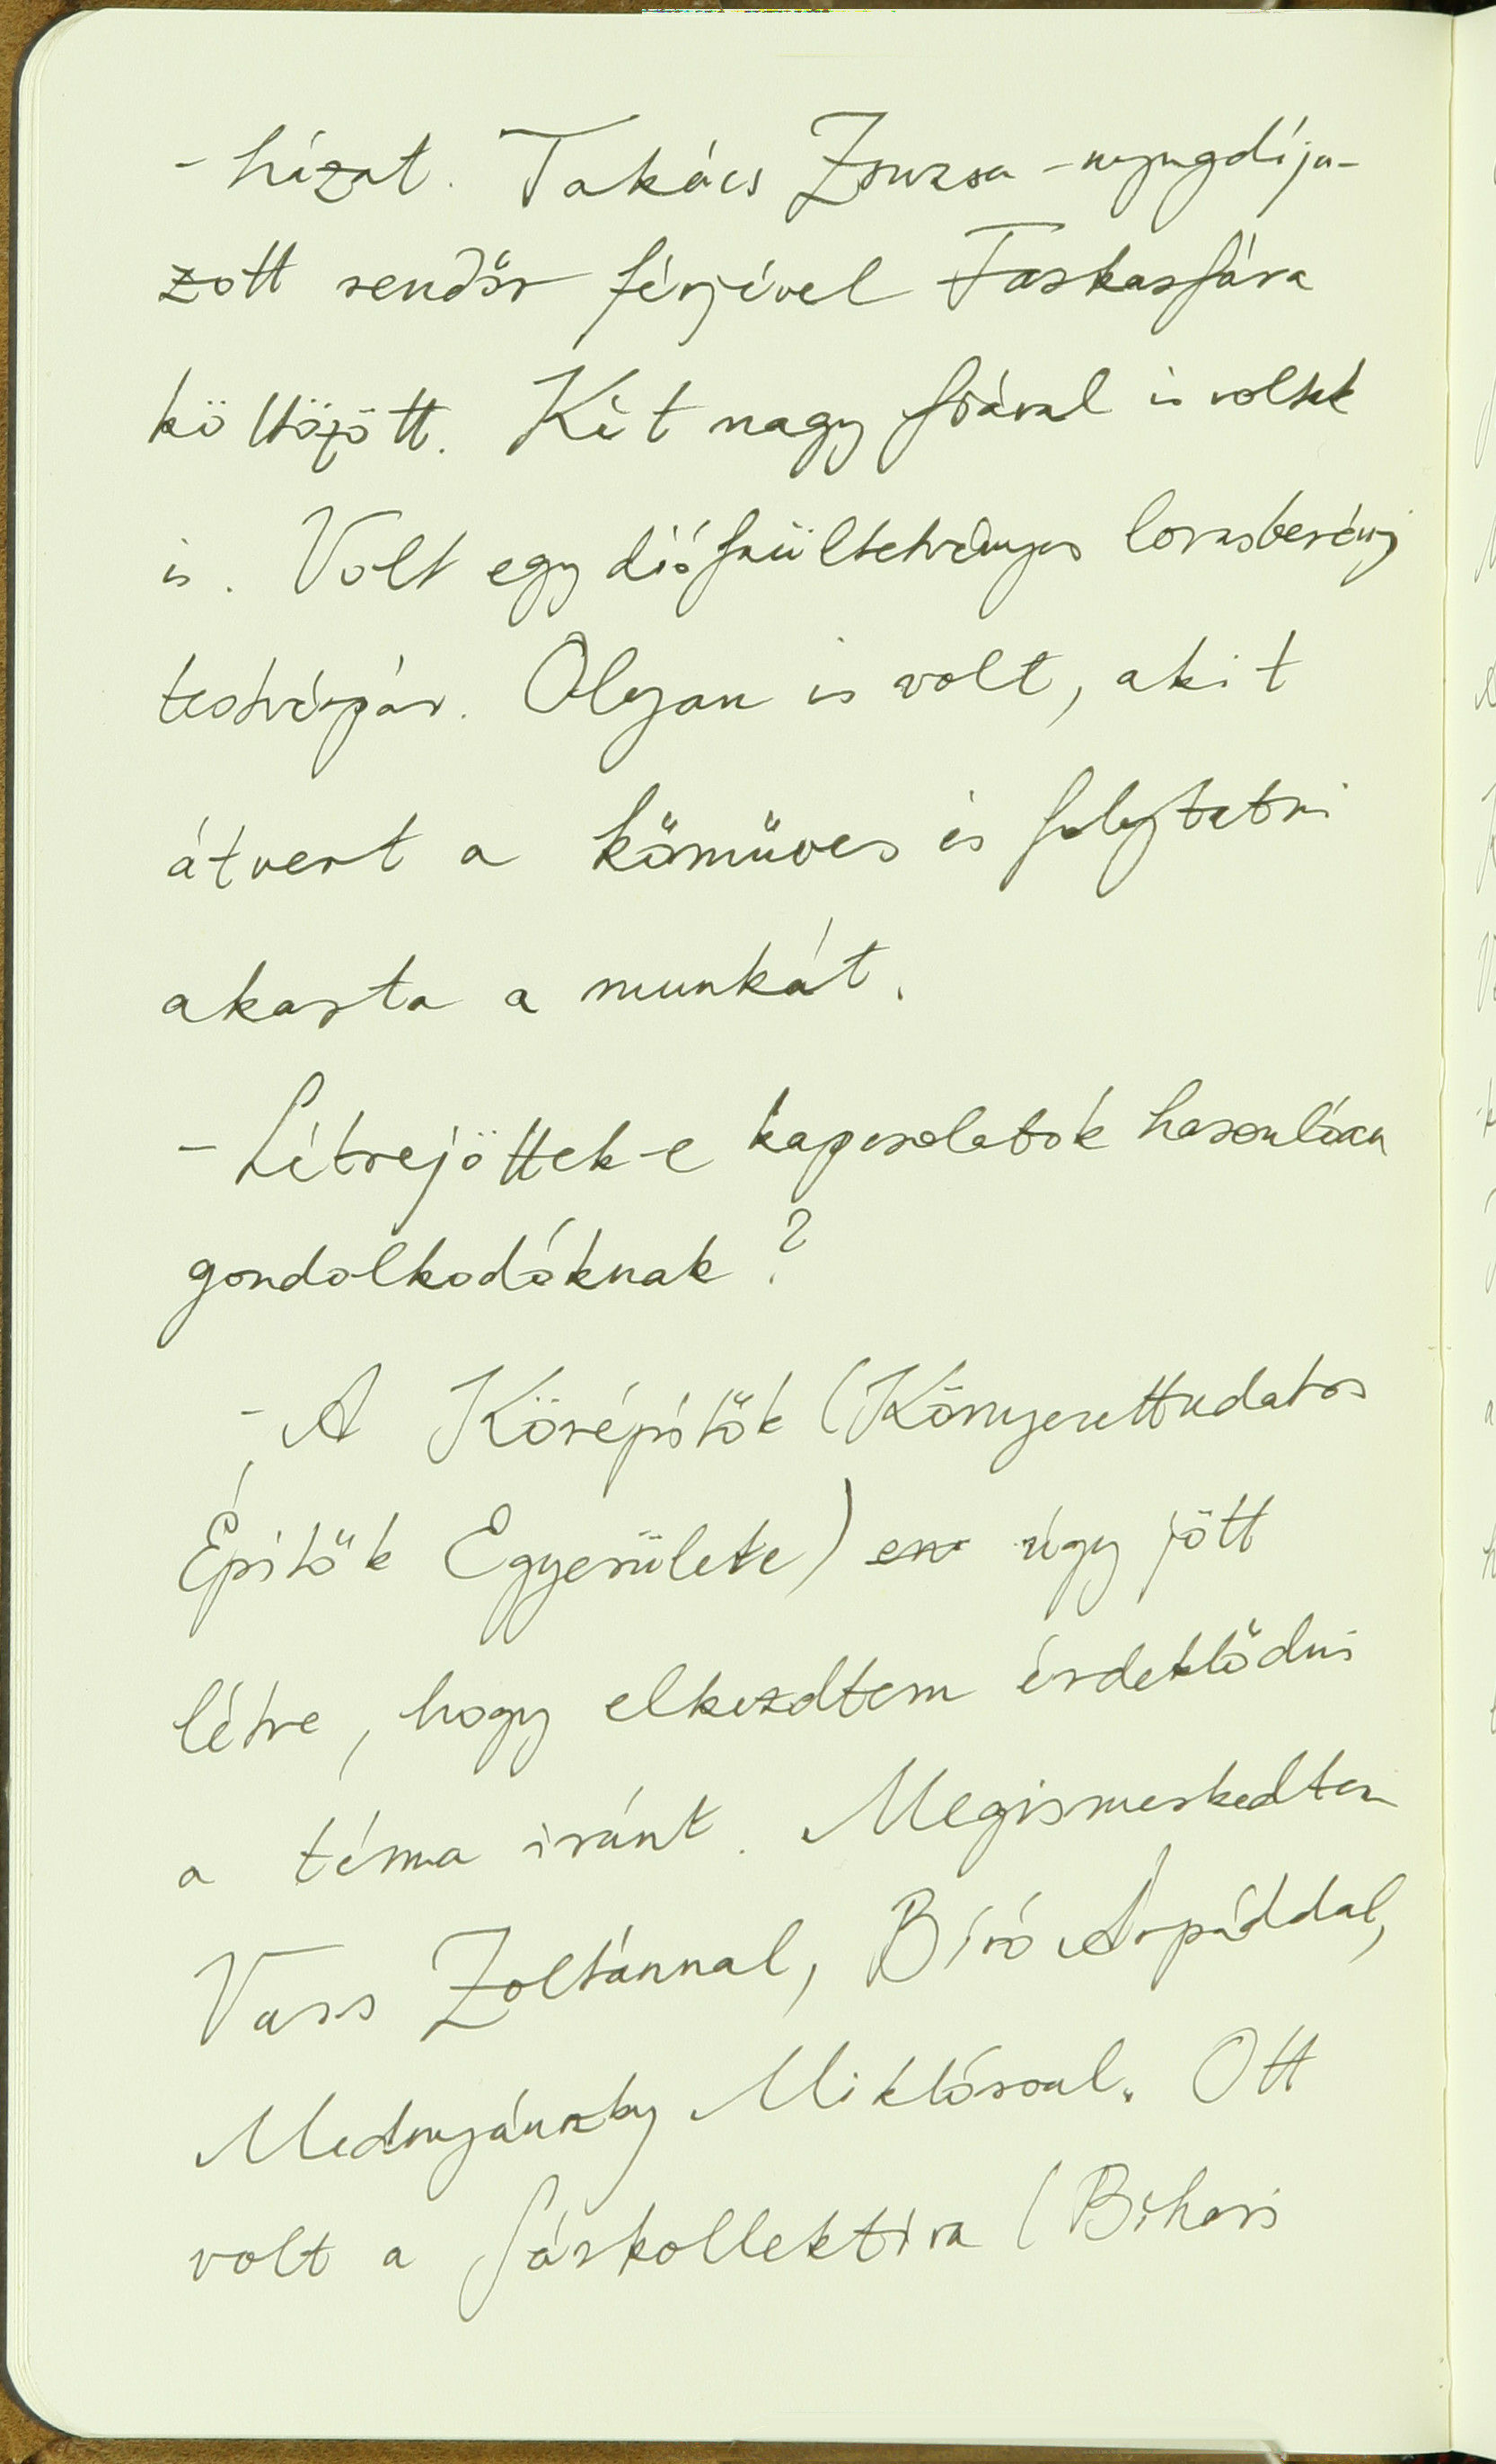 -házat. Takács Zsuzsa -nyugdíja-
zott rendőr férjével Farkasfára
költözött. Két nagy fiával is voltak
is. Volt egy diófaültetvényes lovasberényi
testvérpár. Olyan is volt, akit
átvert a kőműves és folytatni
akarta a munkát.
- Létrejöttek-e kapcsolatok hasonlóan
gondolkodóknak?
- A Körépítők (Környezettudatos
Építők Egyesülete) úgy jött
létre, hogy elkezdtem érdeklődni
a téma iránt. Megismerkedtem
Vass Zoltánnal, Bíró Árpáddal,
Mednyánszky Miklóssal. Ott
volt a Sárkollektíva (Bihari